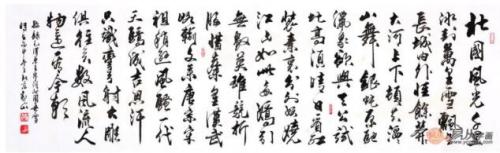 北國風光千里
冰封萬里雪飄望
長城內外惟餘莽莽
大河上下頓失滔滔
山舞銀蛇原馳
蠟象欲與天公試
比高須晴日看紅
裝素裹分外妖嬈
江山如此多嬌引
無數英雄競折
腰惜秦皇漢武
略輸文采唐宗宋
祖稍遜風騷一代
天驕成吉思汗
只識彎弓射大雕
俱往矣數風流人
物還看今朝